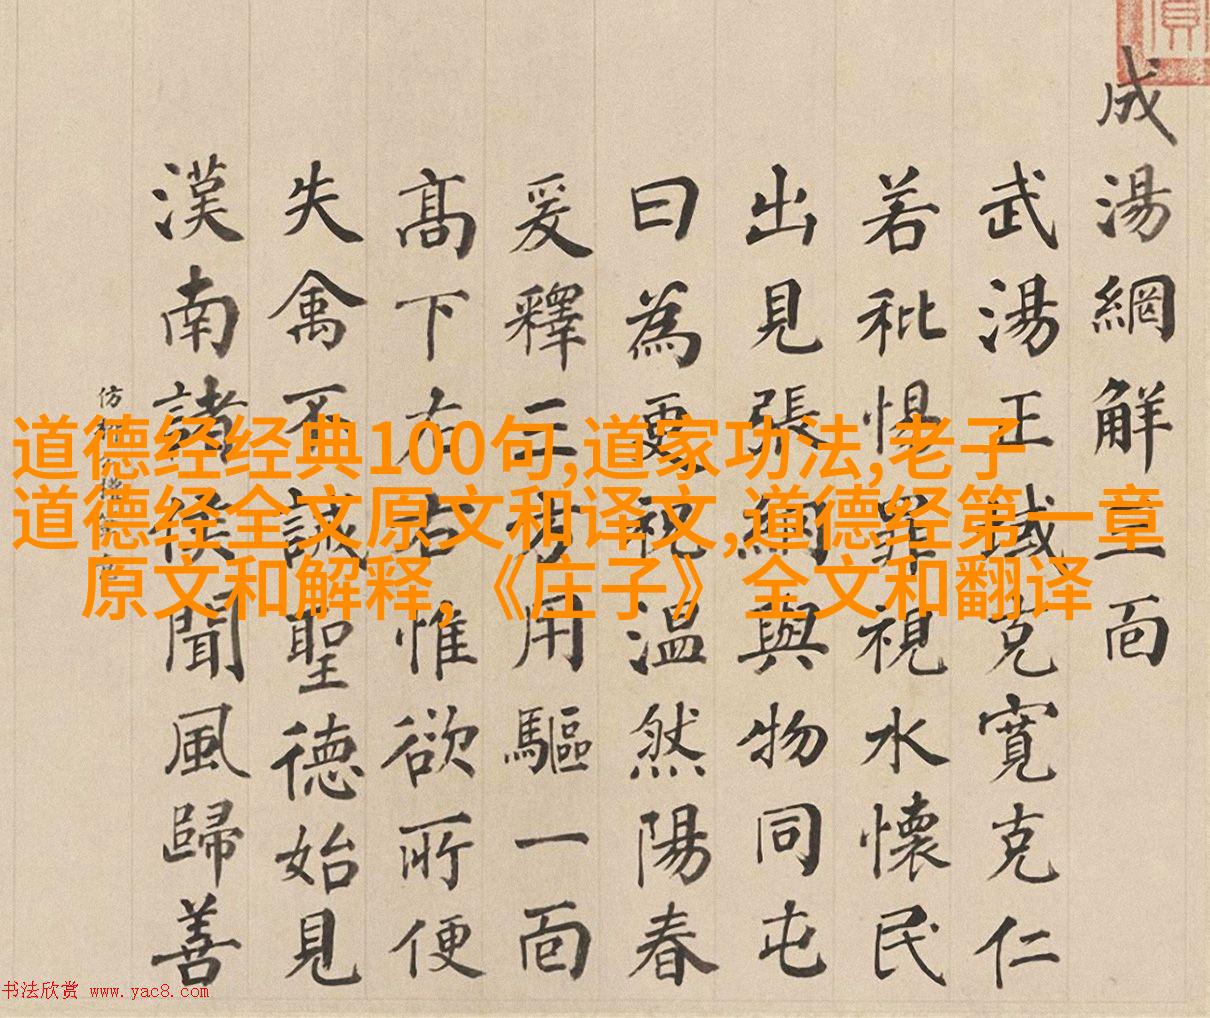 成湯網解三面
武湯正域克寬克仁
若秕惕罪視水懷民
出見張網與物同屯
曰為更祝溫然陽春
爰釋三方用驅一面
高下左右惟欲所便
失禽不誡聖德始見
漢南諸侯聞風歸善
仿
道德经经典100句,道家功法,老子
道德经全文原文和译文,道德经第一章
原文和解释,《庄子》全文和翻译
书法欣赏 www.yac8.com